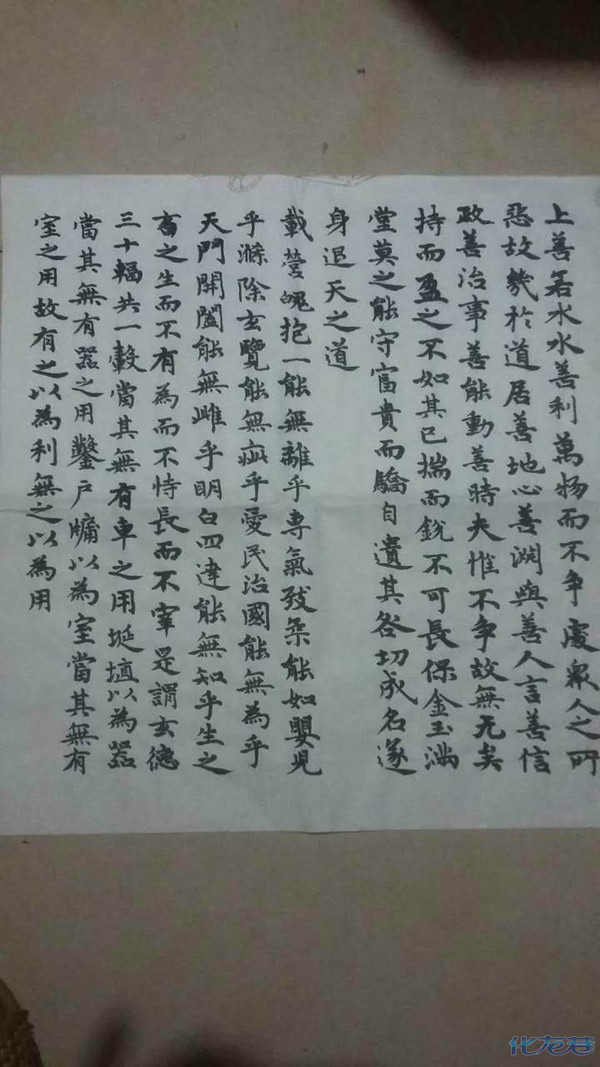 上善若水水善利萬物而不争處衆人之所
惡故幾於道居善地心善渊與善人言善信
政善治事善能動善時夫惟不争故無尤矣
持而盈之不如其已揣而銳不可長保金玉满
堂莫之能守富貴而驕自遺其咎切成名遂
身退天之道
載營魄抱一能無離乎專氣致柔能如嬰兒
乎滌除玄覽能無疵乎愛民治國能無為乎
天門開闔能無雌乎明白四達能無知乎生之
畜之生而不有為而不恃長而不宰是謂玄德
三十輻共一轂當其無有車之用埏埴以為器
當其無有器之用鑿户牖以為室當其無有
室之用故有之以為利無之以為用
化龙巷